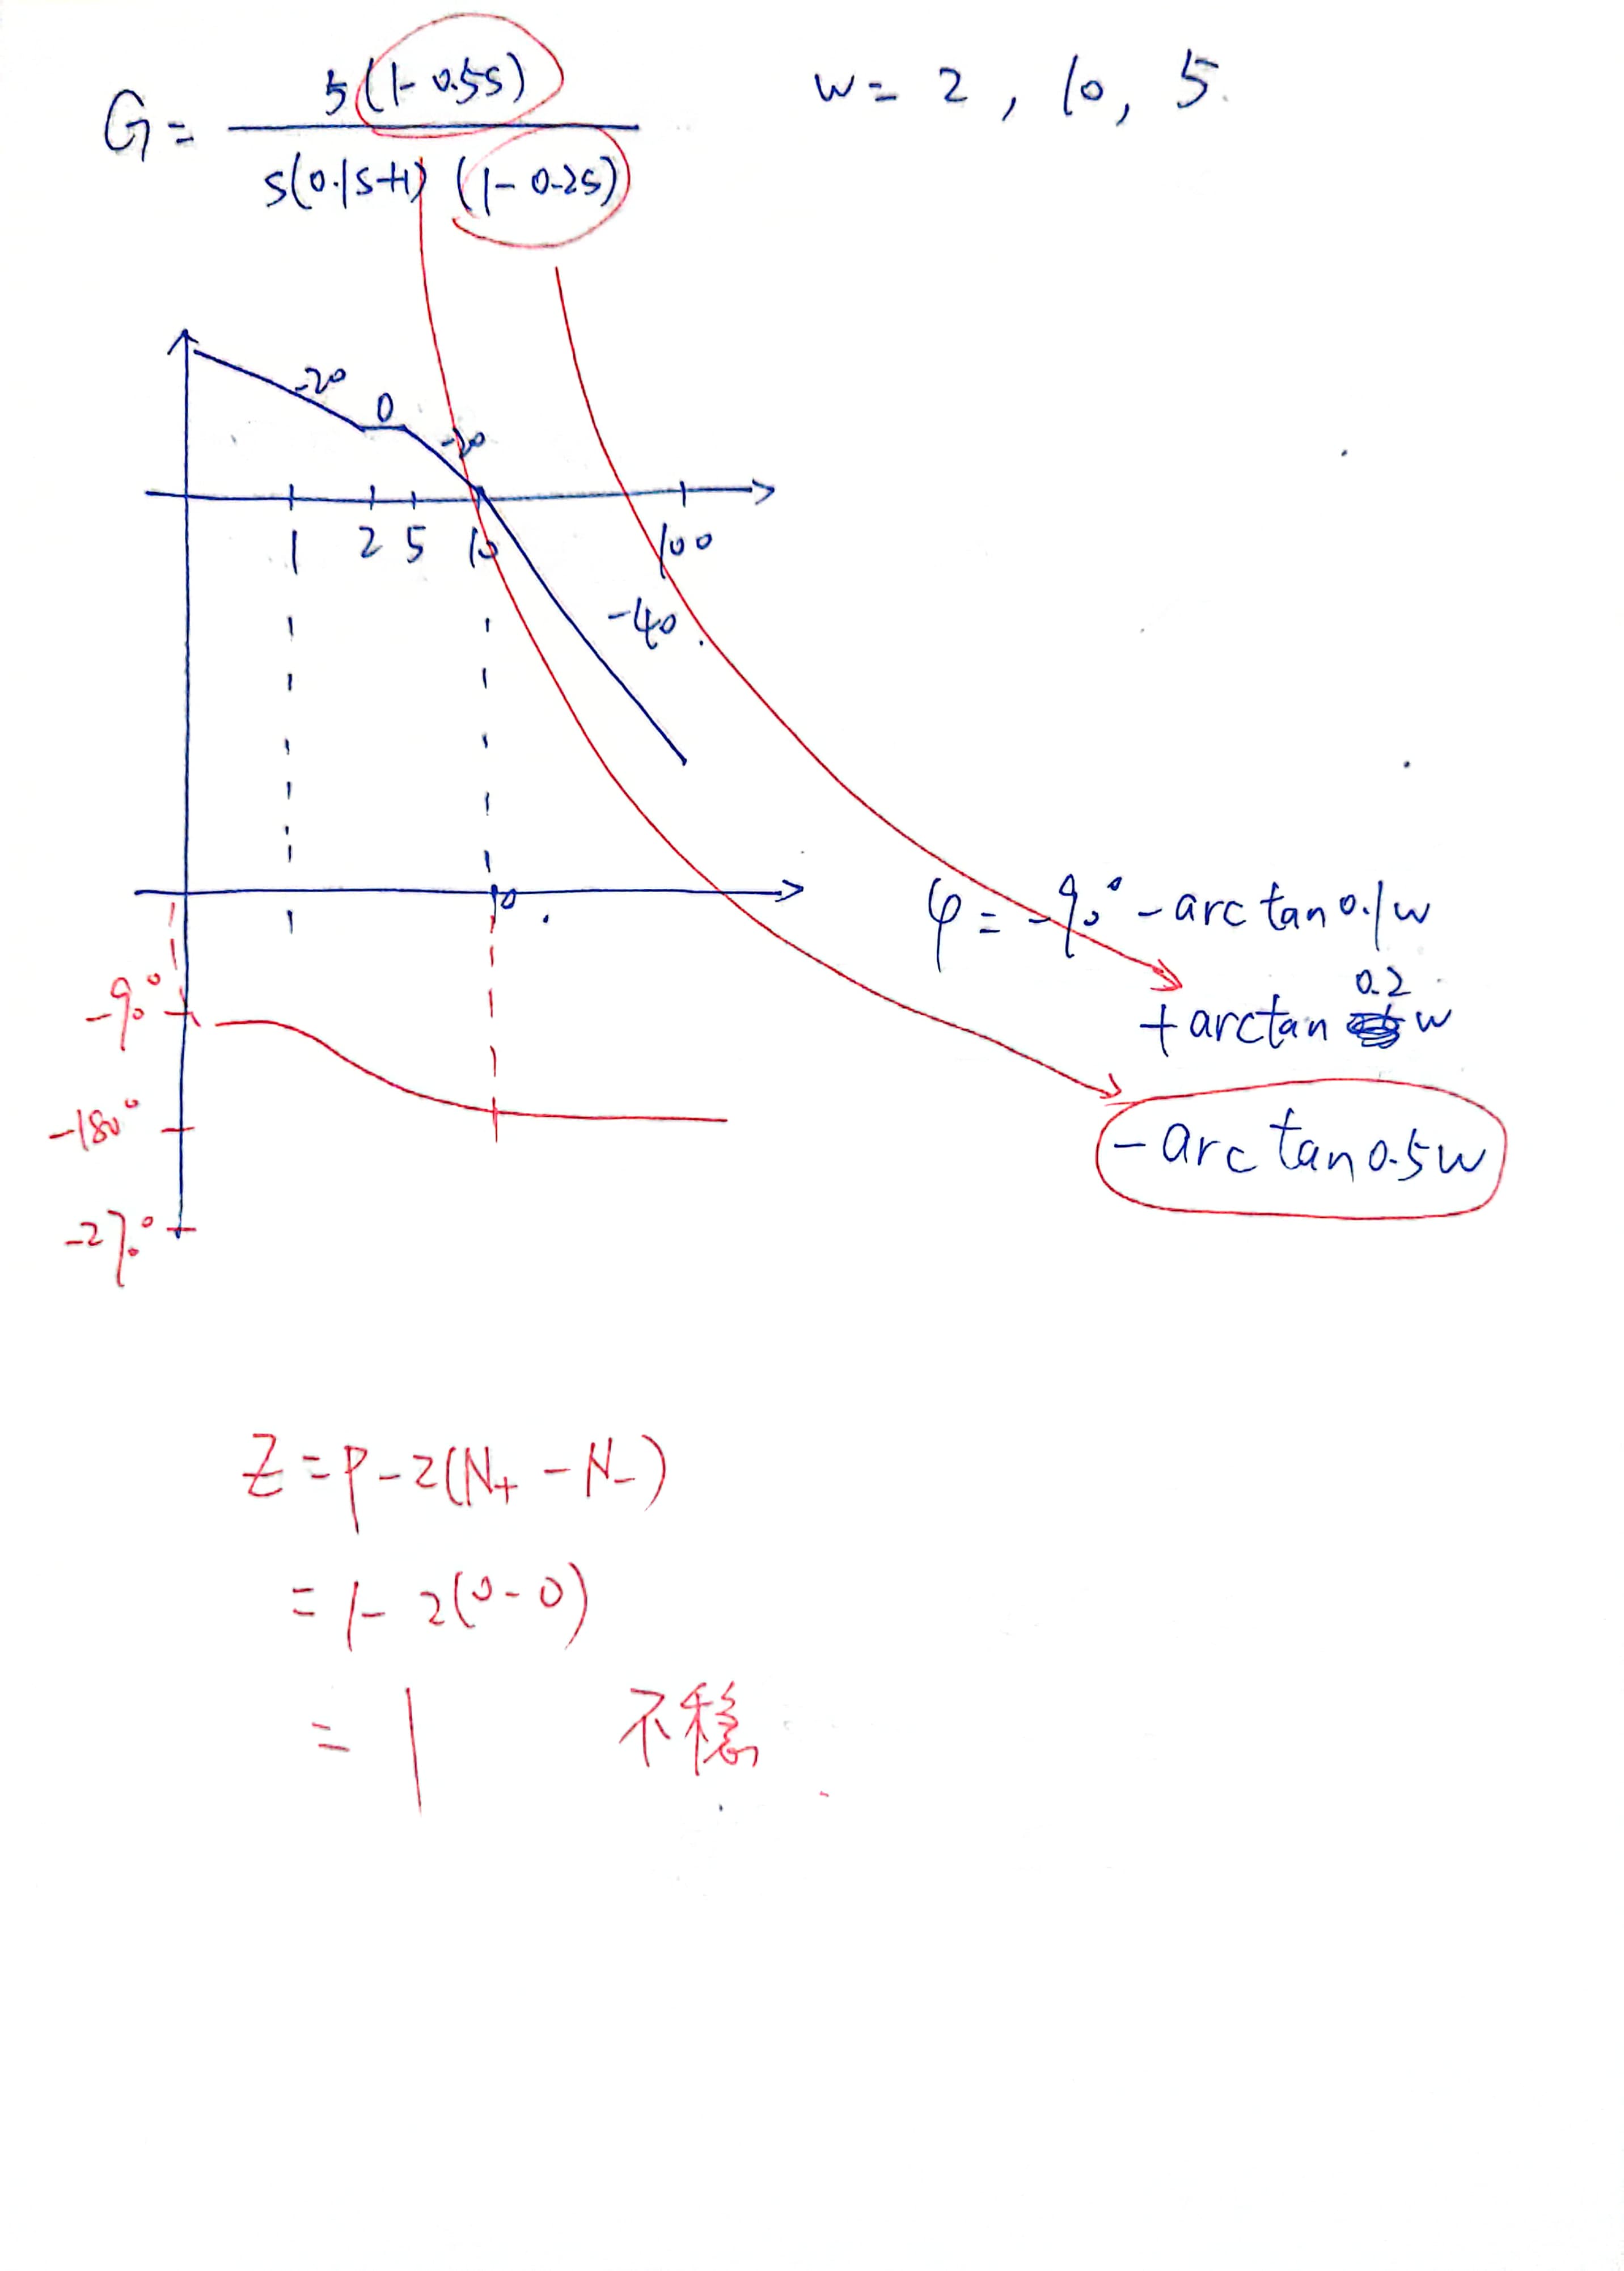 G = 5(1-0.5s) / s(0.1s+1)(1-0.2s)
w = 2, 10, 5.
-20
0
-20
1 2 5 10 100
-40
1 10
φ = -90° - arctan0.1w
+ arctan 0.2 w
- arctan0.5w
-90°
-180°
-270°
Z = P - 2(N+ - N-)
= 1 - 2(0-0)
= 1 不稳